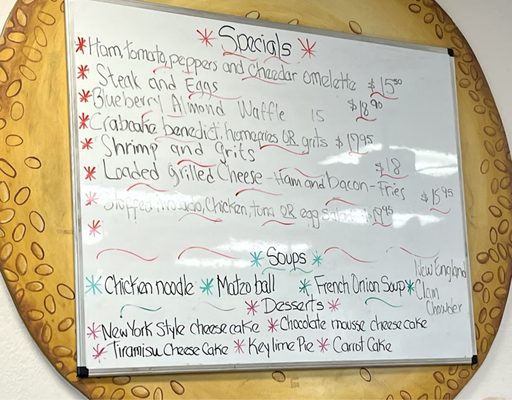 Specials
Ham, tomato, peppers and cheddar omelette $15.50
Steak and Eggs $18.90
Blueberry Almond Waffle 15
Crabcake benedict, homefries OR grits $17.95
Shrimp and grits $18
Loaded grilled Cheese - Ham and Bacon - Fries $15.95
Avocado, Chicken, tuna OR egg
Soups
Chicken noodle Matzo ball French Onion Soup New England Clam Chowder
Desserts
New York Style cheese cake Chocolate mousse cheese cake
Tiramisu Cheese Cake Key lime Pie Carrot Cake